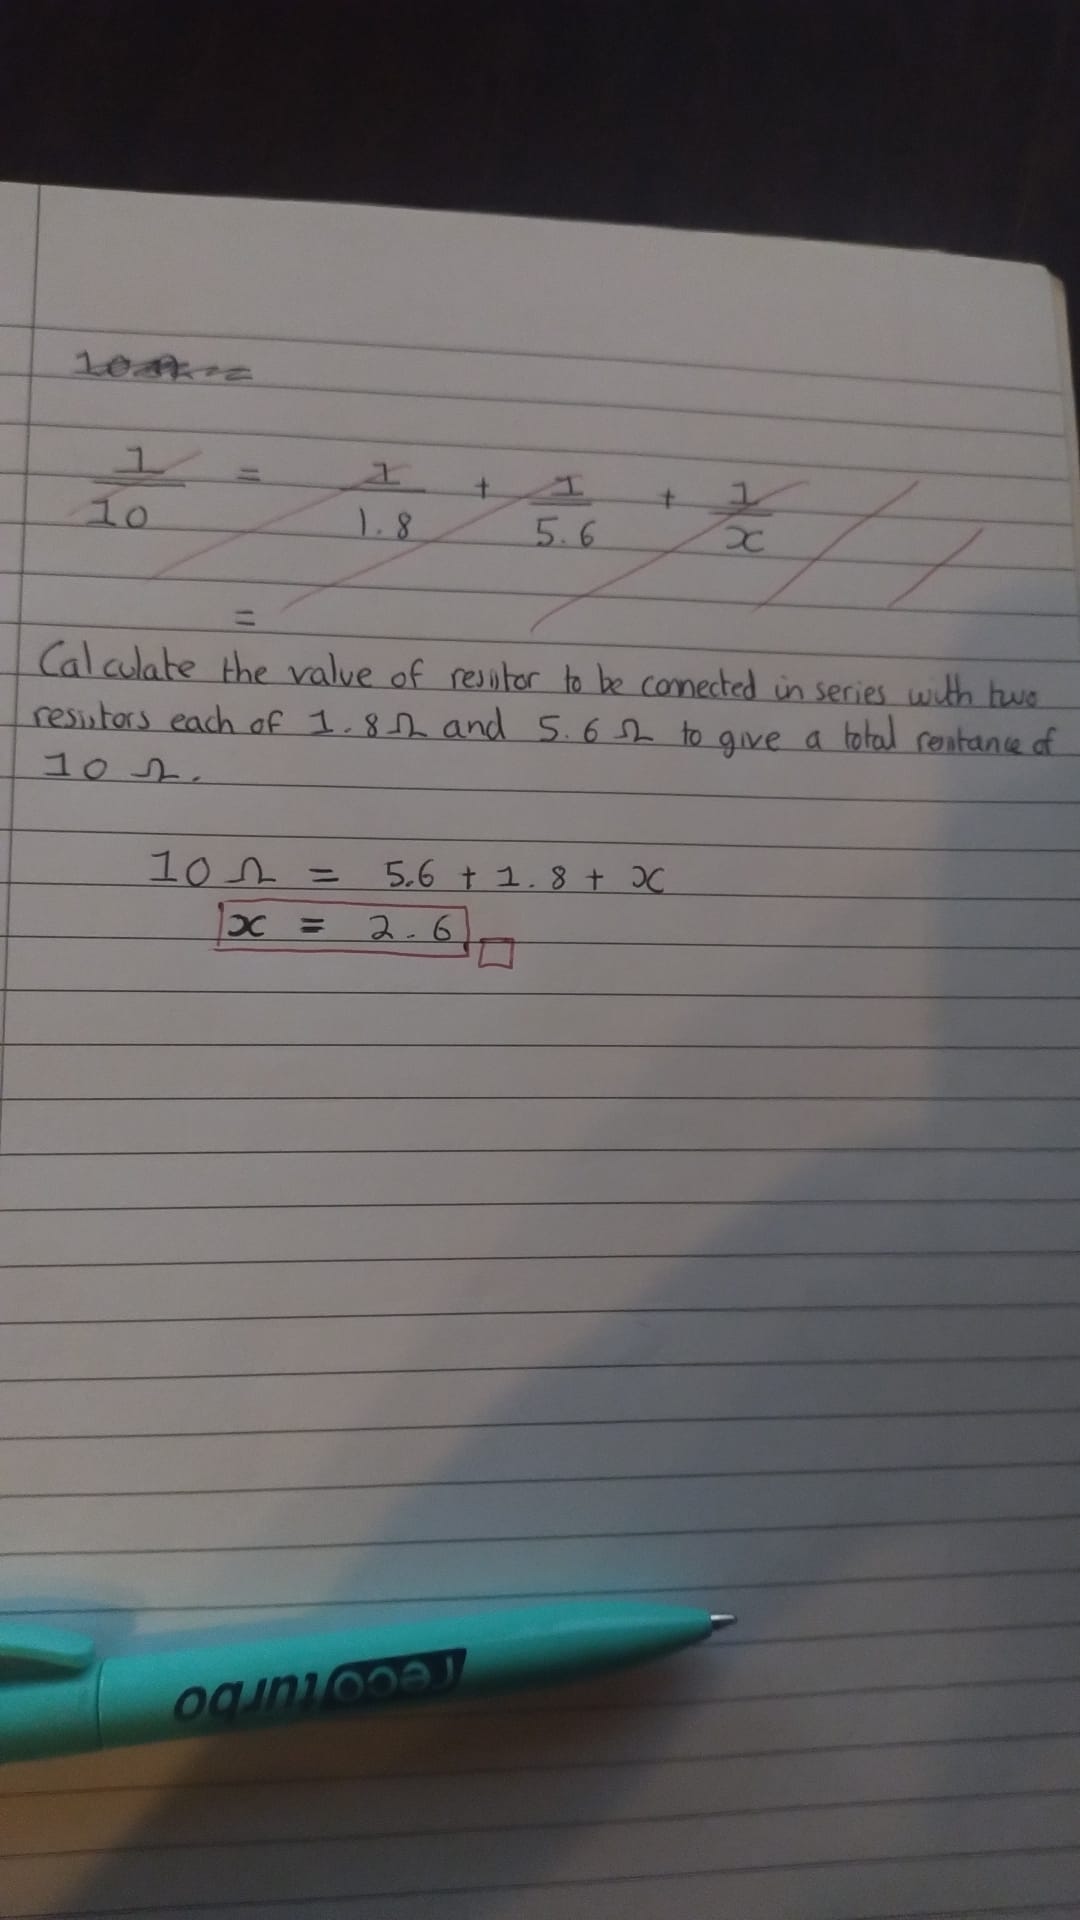 1 = 1 + 1 + 1
10 1.8 5.6 x
=
Calculate the value of resistor to be connected in series with two
resistors each of 1.8Ω and 5.6 Ω to give a total resistance of
10 Ω.
10 Ω = 5.6 + 1.8 + x
x = 2.6
recoturbo